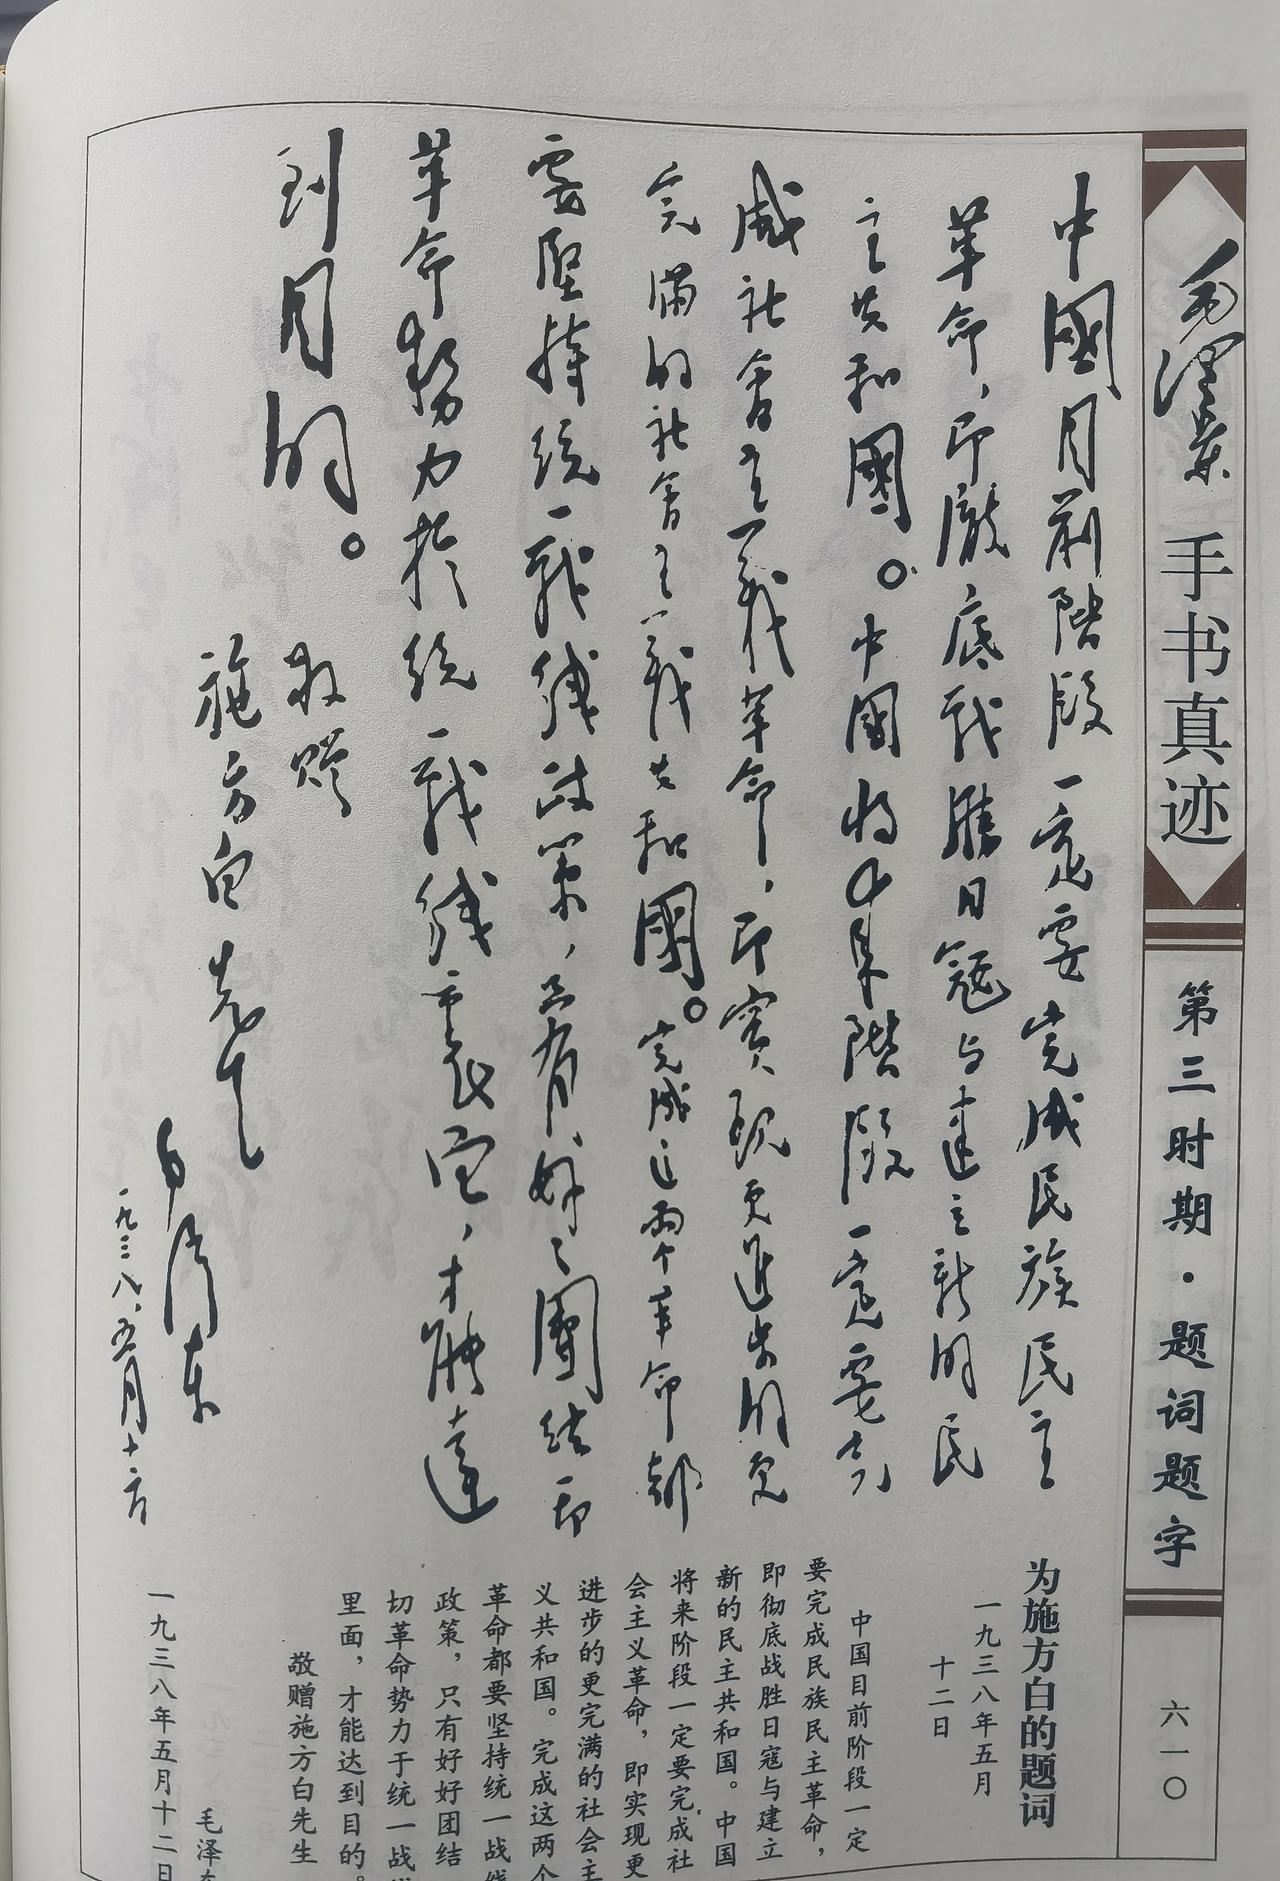 毛泽东 手书真迹
第三时期·题词题字
六一〇
中國目前階段一定要完成民族民主
革命，即徹底戰勝日寇与建立新的民
主共和國。中國將來階段一定要完
成社會主義革命，即實現更進步的更
完滿的社會主義共和國。完成这兩个革命都
要堅持統一戰線政策，只有好好團結一切
革命勢力於統一戰線裏面，才能達
到目的。
敬赠
施方白先生
毛泽东
一九三八、五月十二日
为施方白的题词
一九三八年五月
十二日
中国目前阶段一定
要完成民族民主革命，
即彻底战胜日寇与建立
新的民主共和国。中国
将来阶段一定要完成社
会主义革命，即实现更
进步的更完满的社会主
义共和国。完成这两个
革命都要坚持统一战线
政策，只有好好团结
切革命势力于统一战
里面，才能达到目的。
敬赠施方白先生
毛泽东
一九三八年五月十二日